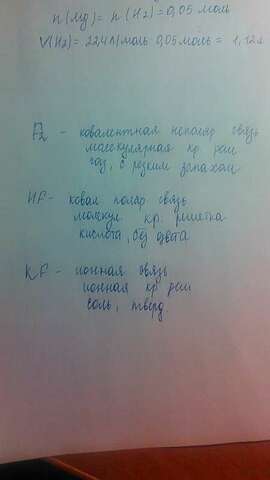 n(Mg) = n(H2) = 0,05 моль
V(H2) = 22,4 л/моль · 0,05 моль = 1,12 л
F2 - ковалентная неполяр связь
молекулярная кр. реш
газ, с резким запахом
HF - ковал поляр связь
молекул. кр. решетка
кислота, без цвета
KF - ионная связь
ионная кр реш
соль, тверд.